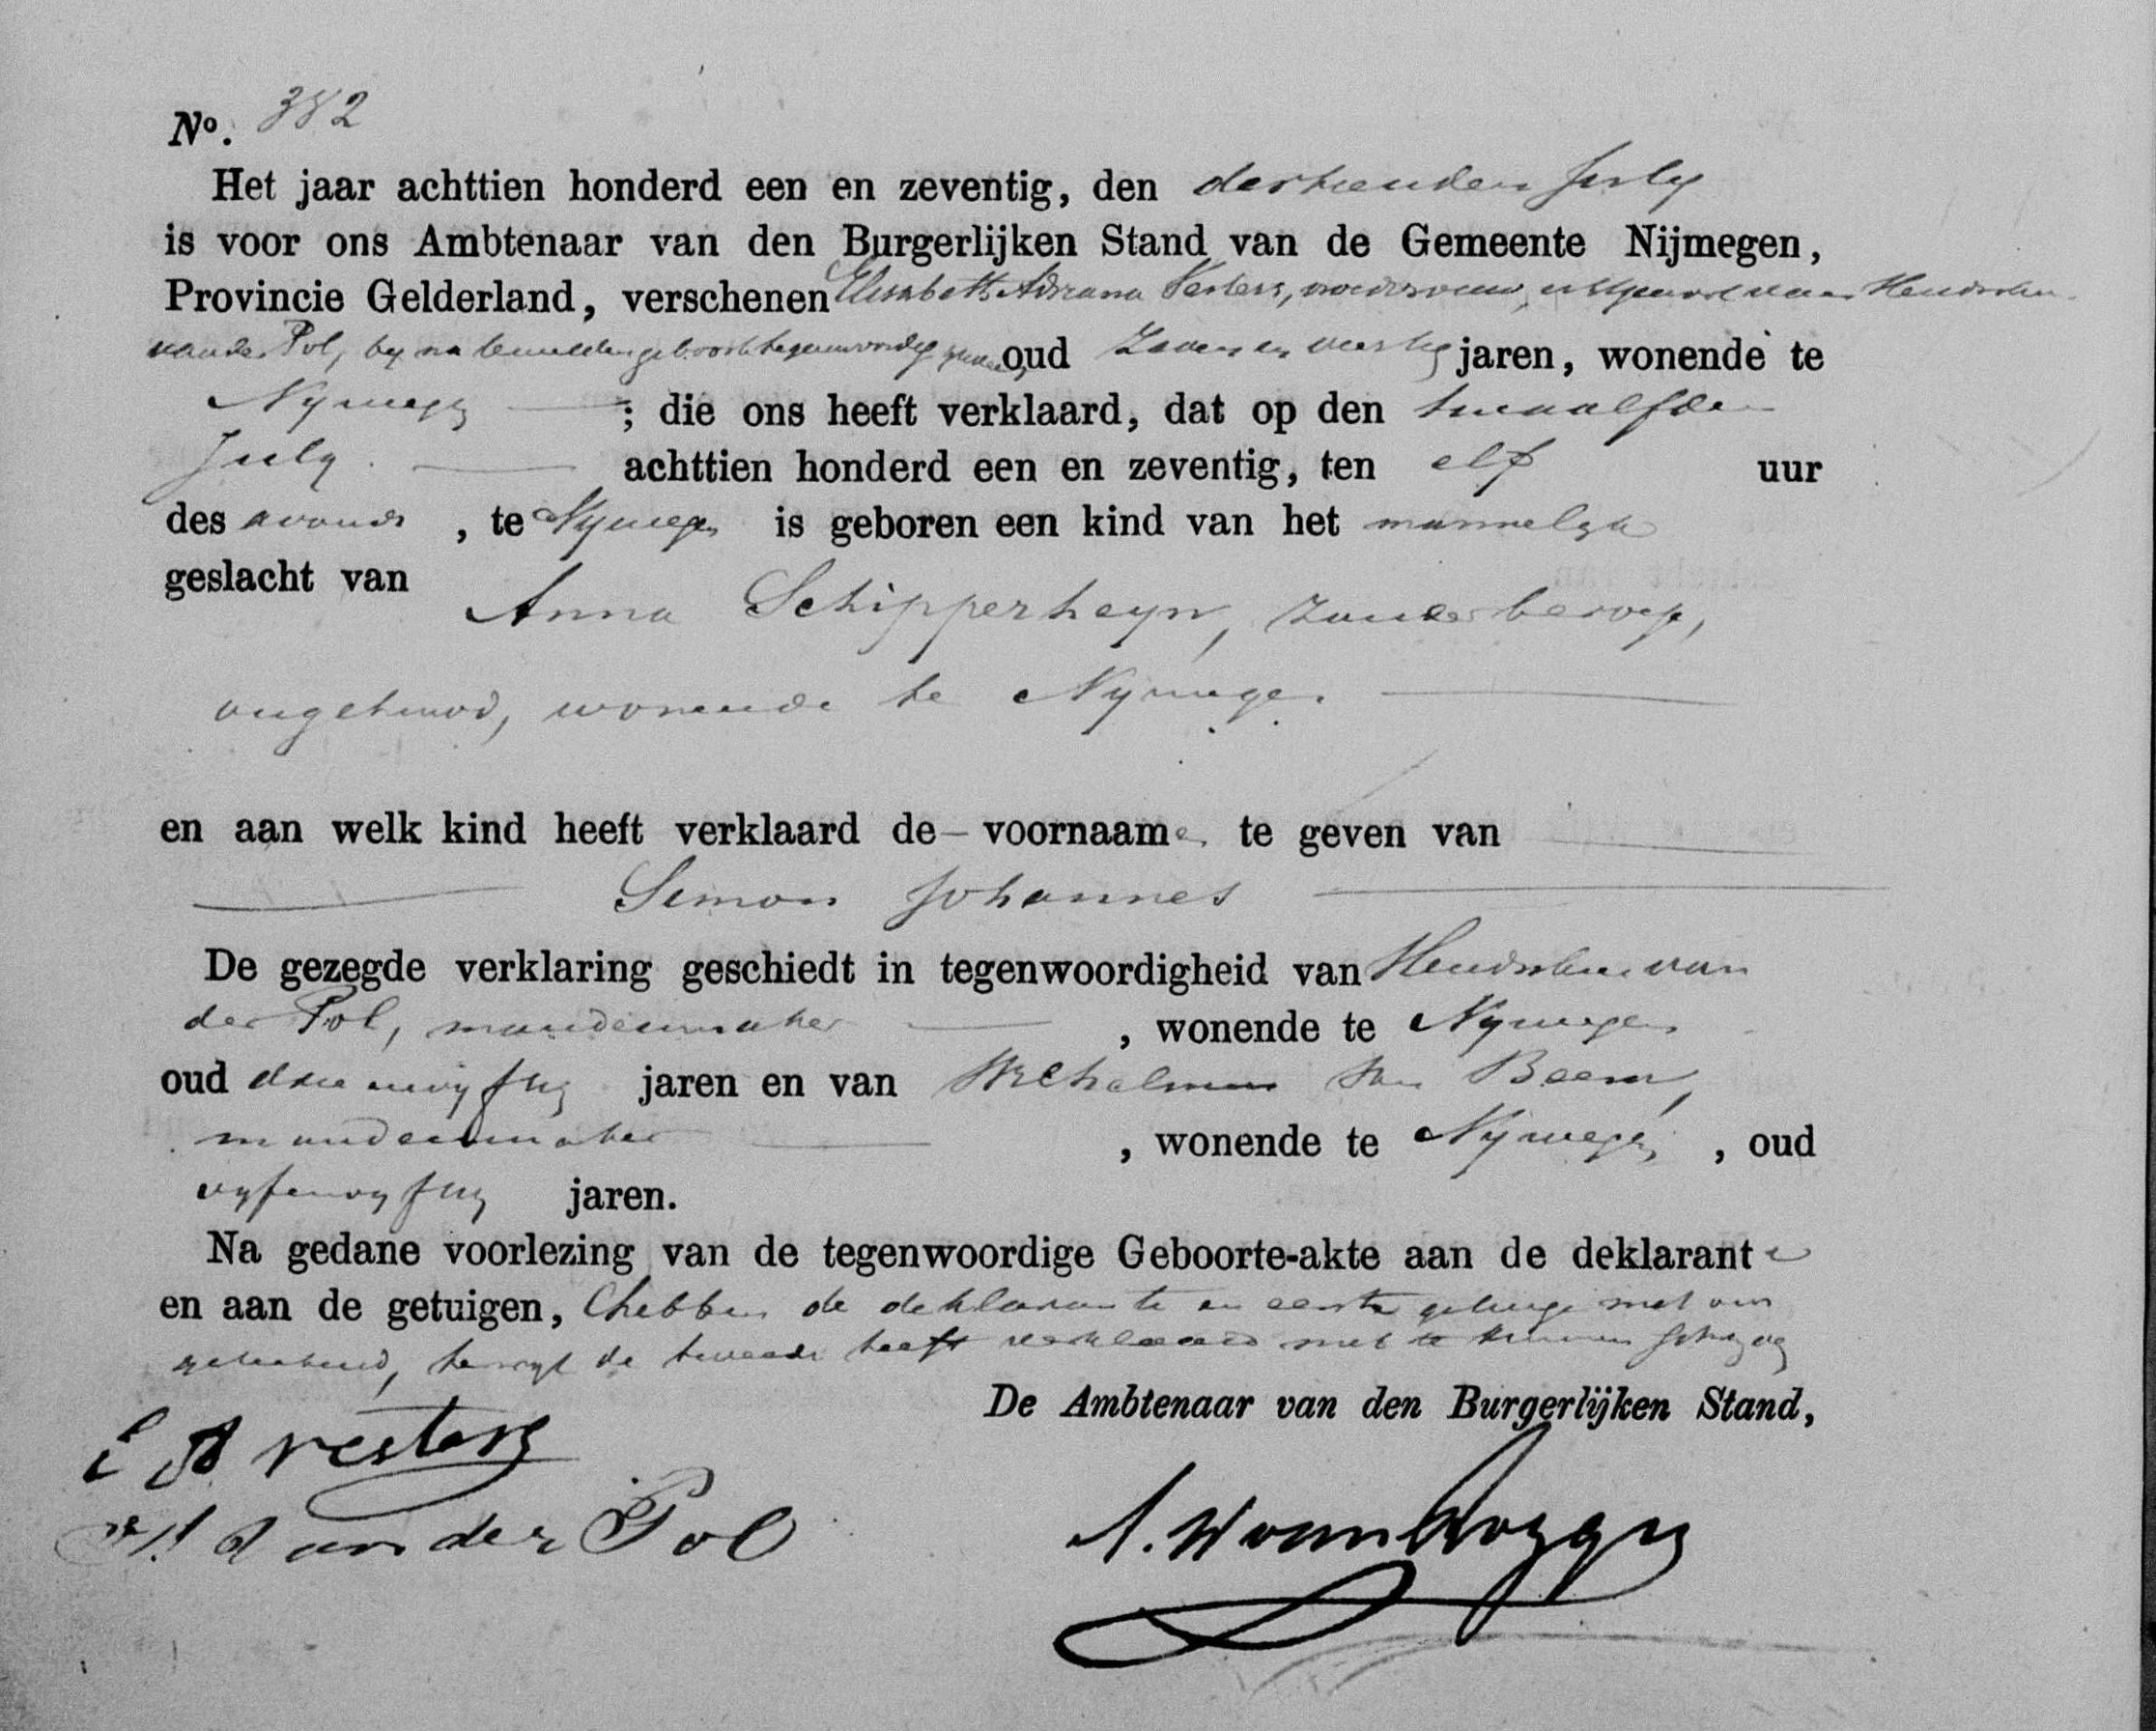 No. 382
Het jaar achttien honderd een en zeventig, den dertienden July
is voor ons Ambtenaar van den Burgerlijken Stand van de Gemeente Nijmegen,
Provincie Gelderland, verschenen Elisabeth Adriana Vesters, vroedvrouw, echtgenoot van Hendrikus
van der Pol, by na temelden geboorte tegenwoordig geweest, oud Zeven en veertig jaren, wonende te
Nymegen ; die ons heeft verklaard, dat op den twaalfden
July achttien honderd een en zeventig, ten elf uur
des avonds , te Nymegen is geboren een kind van het mannelyk
geslacht van Anna Schipperheyn, zonder beroep,
ongehuwd, wonende te Nymegen.
en aan welk kind heeft verklaard de voorname te geven van
Simon Johannes
De gezegde verklaring geschiedt in tegenwoordigheid van Hendrikus van
der Pol, mandenmaker , wonende te Nymegen
oud drieenvyftig jaren en van Wilhelmus van Beem,
mandenmaker , wonende te Nymegen , oud
vyfenvyftig jaren.
Na gedane voorlezing van de tegenwoordige Geboorte-akte aan de deklarante
en aan de getuigen, hebben de deklarante en eerste getuige met ons
geteekend, terwyl de tweede heeft verklaard niet te kunnen schryven
De Ambtenaar van den Burgerlijken Stand,
E A vesters
H van der Pol